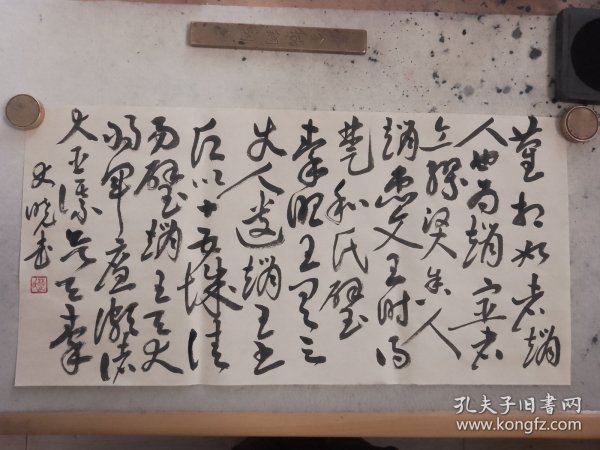 蔺相如者赵
人也为赵宦者
令缪贤舍人
赵惠文王时得
楚和氏璧
秦昭王闻之
使人遗赵王书
愿以十五城请
易璧赵王与大
将军廉颇诸
大臣谋
孔夫子旧书网
www.kongfz.com